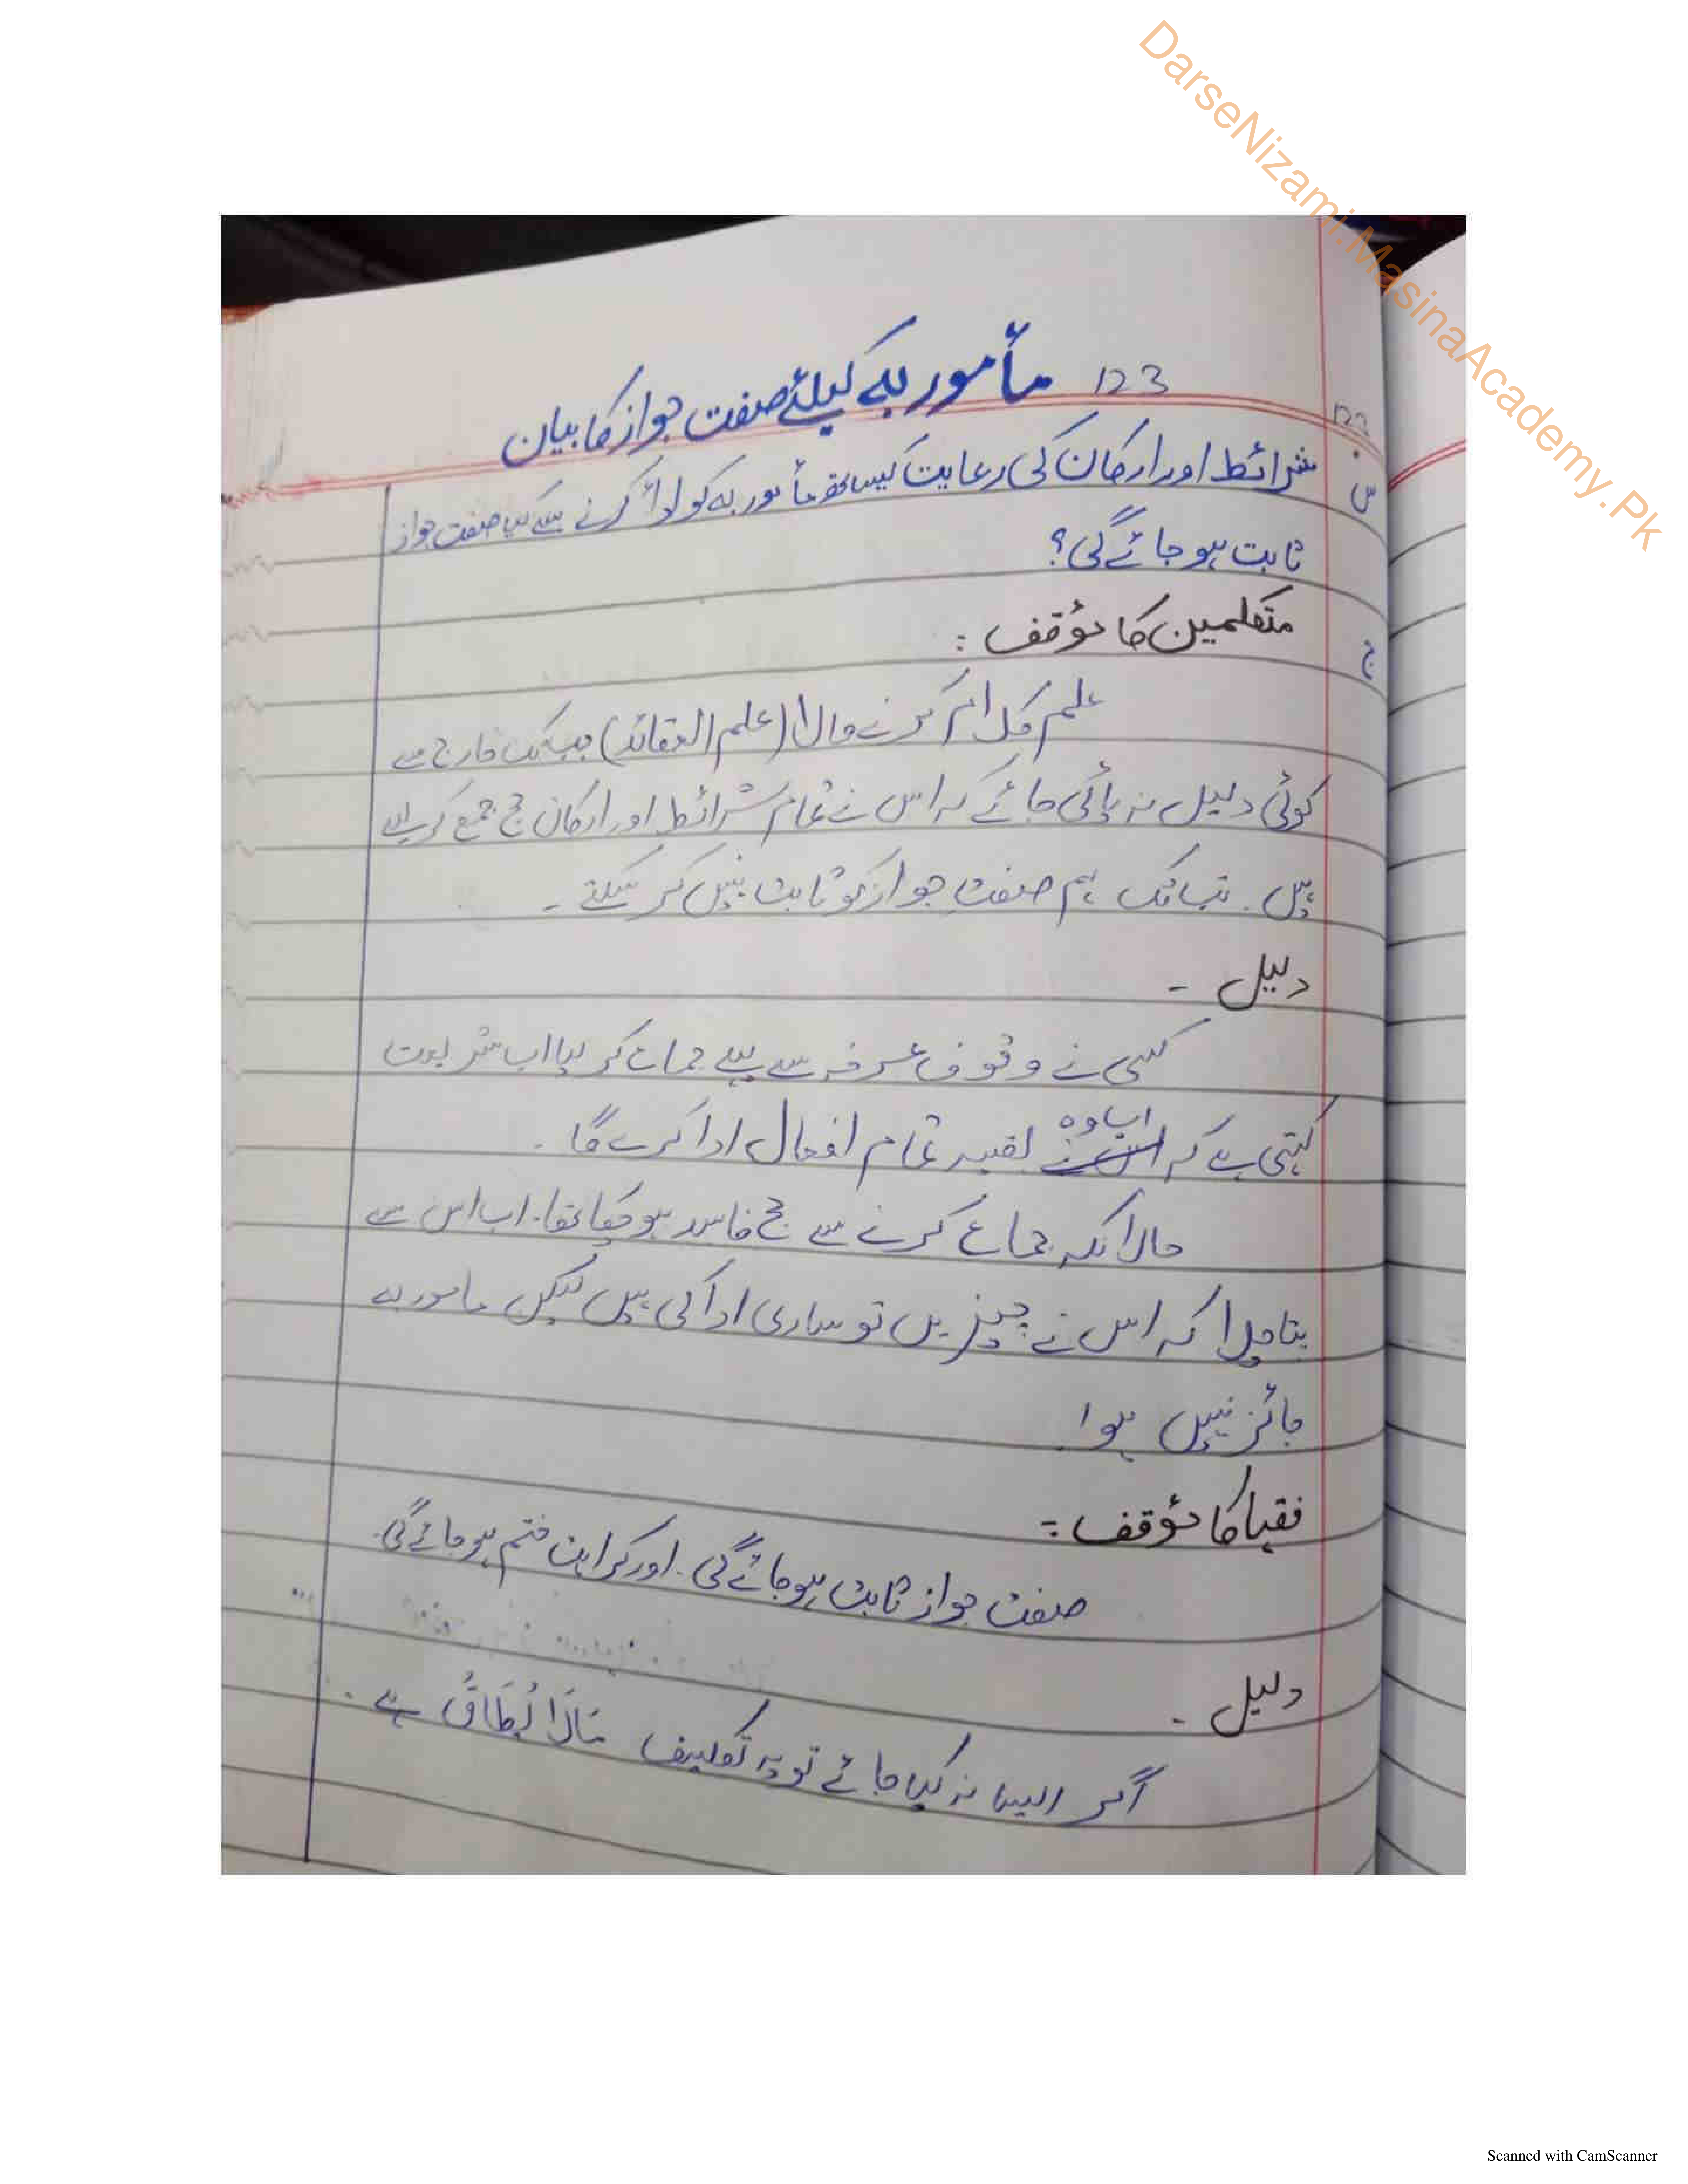 DarseNizami.MasinaAcademy.Pk
123 مأمور بہ کیلئے صفت جواز کا بیان
س شرائط اور ارکان کی رعایت کیساتھ مأمور بہ کو ادا کرنے سے کیا صفت جواز
ثابت ہو جائے گی؟
ج متکلمین کا مؤقف :
علم کلام کرنے والا (علم العقائد) جب تک خارج سے
کوئی دلیل نہ پائی جائے کہ اس نے تمام شرائط اور ارکان حج جمع کر لیے
ہیں. تب تک ہم صفت جواز کو ثابت نہیں کر سکتے ۔
دلیل ۔
کسی نے وقوف عرفہ سے پہلے جماع کر لیا اب شریعت
کہتی ہے کہ اب وہ بقیہ تمام افعال ادا کرے گا ۔
حالانکہ جماع کرنے سے حج فاسد ہو چکا تھا. اب اس سے
پتا چلا کہ اس نے چیزیں تو ساری ادا کی ہیں لیکن مامور بہ
جائز نہیں ہوا
فقہا کا مؤقف :۔
صفت جواز ثابت ہو جائے گی. اور کراہت ختم ہو جائے گی.
دلیل ۔
اگر ایسا نہ کیا جائے تو یہ تکلیف مَالَا یُطَاقُ ہے ۔
Scanned with CamScanner